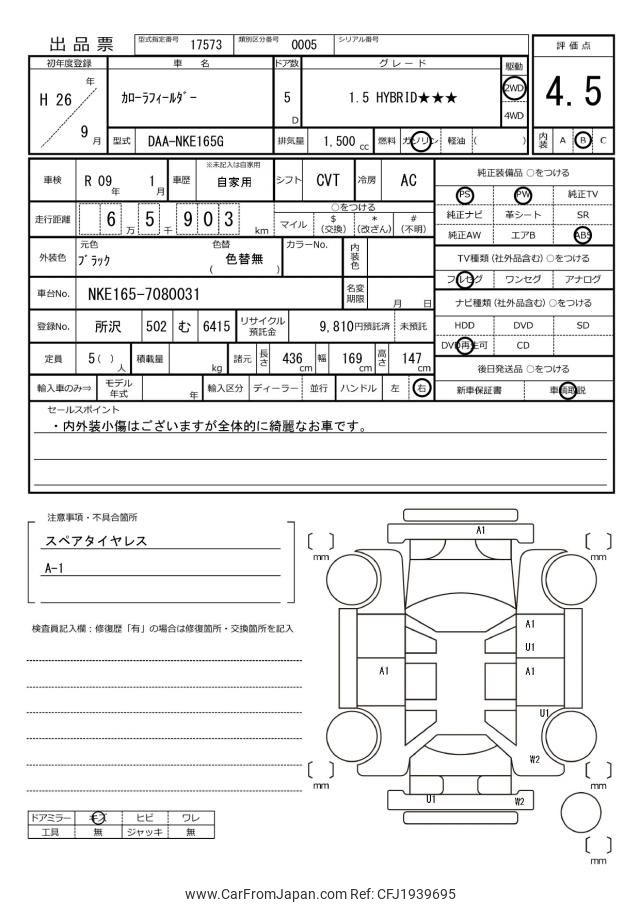 出品票 型式指定番号 17573 類別区分番号 0005 シリアル番号
評価点
4.5
内装 A B C
初年度登録 車名 ドア数 グレード 駆動
H 26 年 9 月 カローラフィールダー 5 D 1.5 HYBRID★★★ 2WD
4WD
型式 DAA-NKE165G 排気量 1,500 cc 燃料 ガソリン 軽油 ( )
車検 R 09 年 1 月 車歴 ※未記入は自家用 自家用 シフト CVT 冷房 AC
走行距離 6 5 万 9 千 0 3 km
○をつける
マイル $ (交換) * (改ざん) # (不明)
外装色 元色 ブラック 色替 ( 色替無 ) カラーNo. 内装色
車台No. NKE165-7080031 名変期限 月 日
登録No. 所沢 502 む 6415 リサイクル預託金 9,810円預託済 未預託
定員 5( ) 人 積載量 kg 諸元 長さ 436 cm 幅 169 cm 高さ 147 cm
輸入車のみ⇒ モデル年式 年 輸入区分 ディーラー 並行 ハンドル 左 右
純正装備品 ○をつける
PS PW 純正TV
純正ナビ 革シート SR
純正AW エアB ABS
TV種類(社外品含む) ○をつける
フルセグ ワンセグ アナログ
ナビ種類(社外品含む) ○をつける
HDD DVD SD
DVD再生可 CD
後日発送品 ○をつける
新車保証書 車輌取説
セールスポイント
・内外装小傷はございますが全体的に綺麗なお車です。
注意事項・不具合箇所
スペアタイヤレス
A-1
検査員記入欄：修復歴「有」の場合は修復箇所・交換箇所を記入
A1
mm mm
A1
U1
A1 A1
U1
W2
mm mm
U1 W2
mm
ドアミラー キズ ヒビ ワレ
工具 無 ジャッキ 無
www.CarFromJapan.com Ref: CFJ1939695